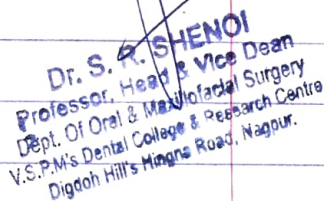 Dr. S. R. SHENOI
Professor, Head & Vice Dean
Dept. Of Oral & Maxillofacial Surgery
V.S.P.M's Dental College & Research Centre
Digdoh Hill's Hingna Road, Nagpur.